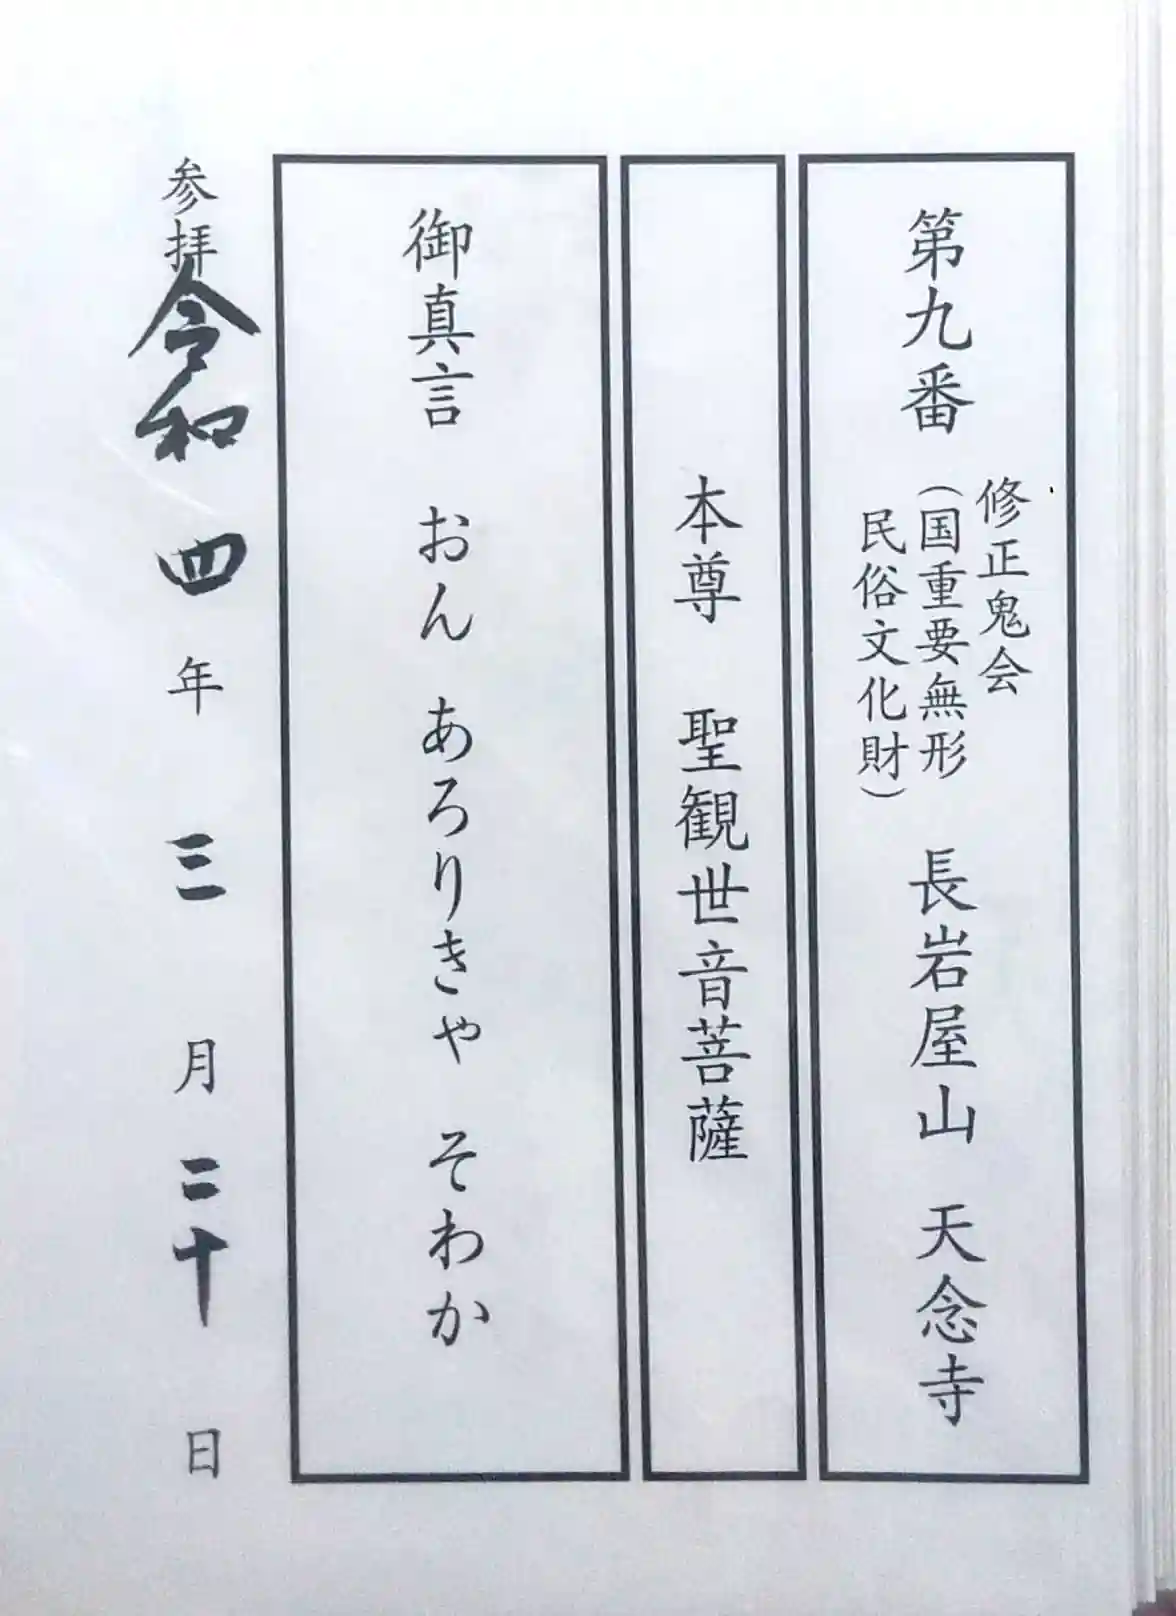 第九番
修正鬼会
(国重要無形
民俗文化財)
長岩屋山 天念寺
本尊 聖観世音菩薩
御真言 おん あろりきゃ そわか
参拝 令和四年 三月二十日